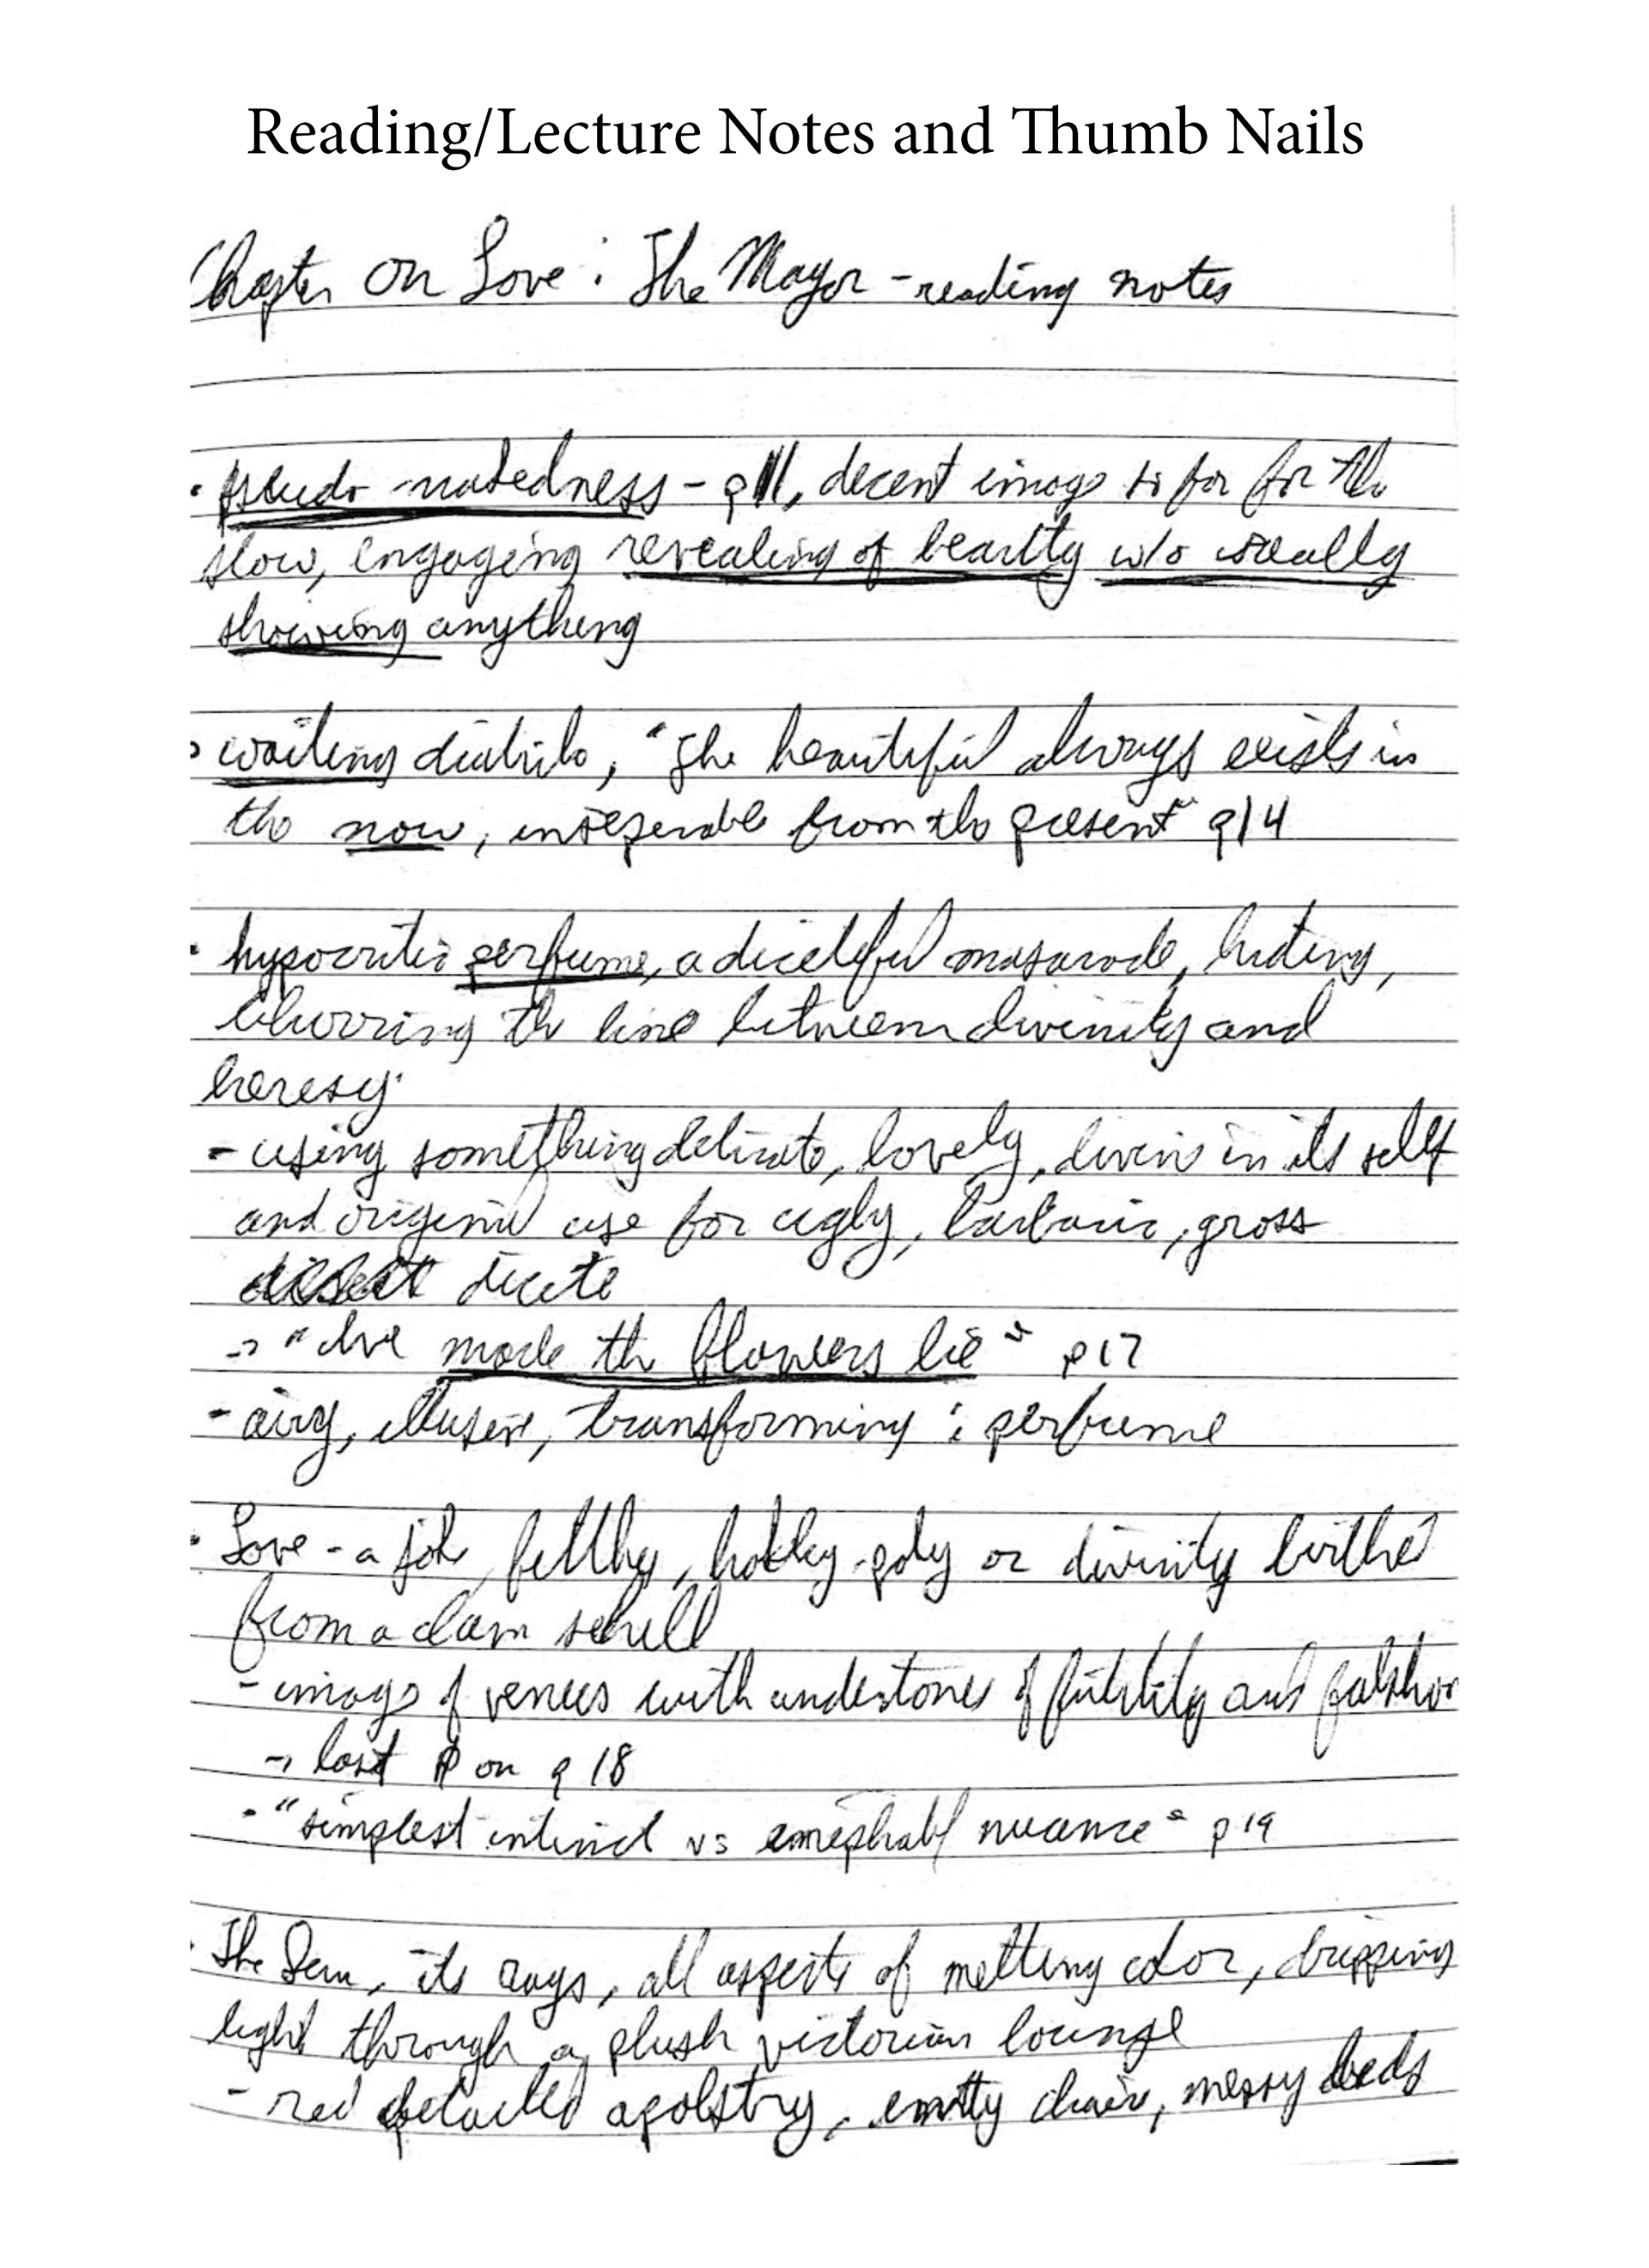 Reading/Lecture Notes and Thumb Nails
Chapter on Love : The Mayor - reading notes
· pseudo - nakedness - p11, decent image
slow, engaging revealing of beautty w/o
showing anything
waiting, "The beautiful always exists in
the now, from the present" p14
· perfume, a masarade, hiding,
blurring the line between divinity and
heresy.
- using something delicate, lovely, in its self
and original use for ugly, barbaric, gross
→ "I've made the flowers lie" p17
- airy, transforming : perfume
· Love - a joke, filthy, or divinity
from a clam
- image of venus with undertones of futility and
→ last ¶ on p 18
- "simplest vs nuance" p 19
· The Sun, its rays, all aspects of melting color, dripping
light through a plush victorian lounge
- red detailed apolstry, chair, messy beds